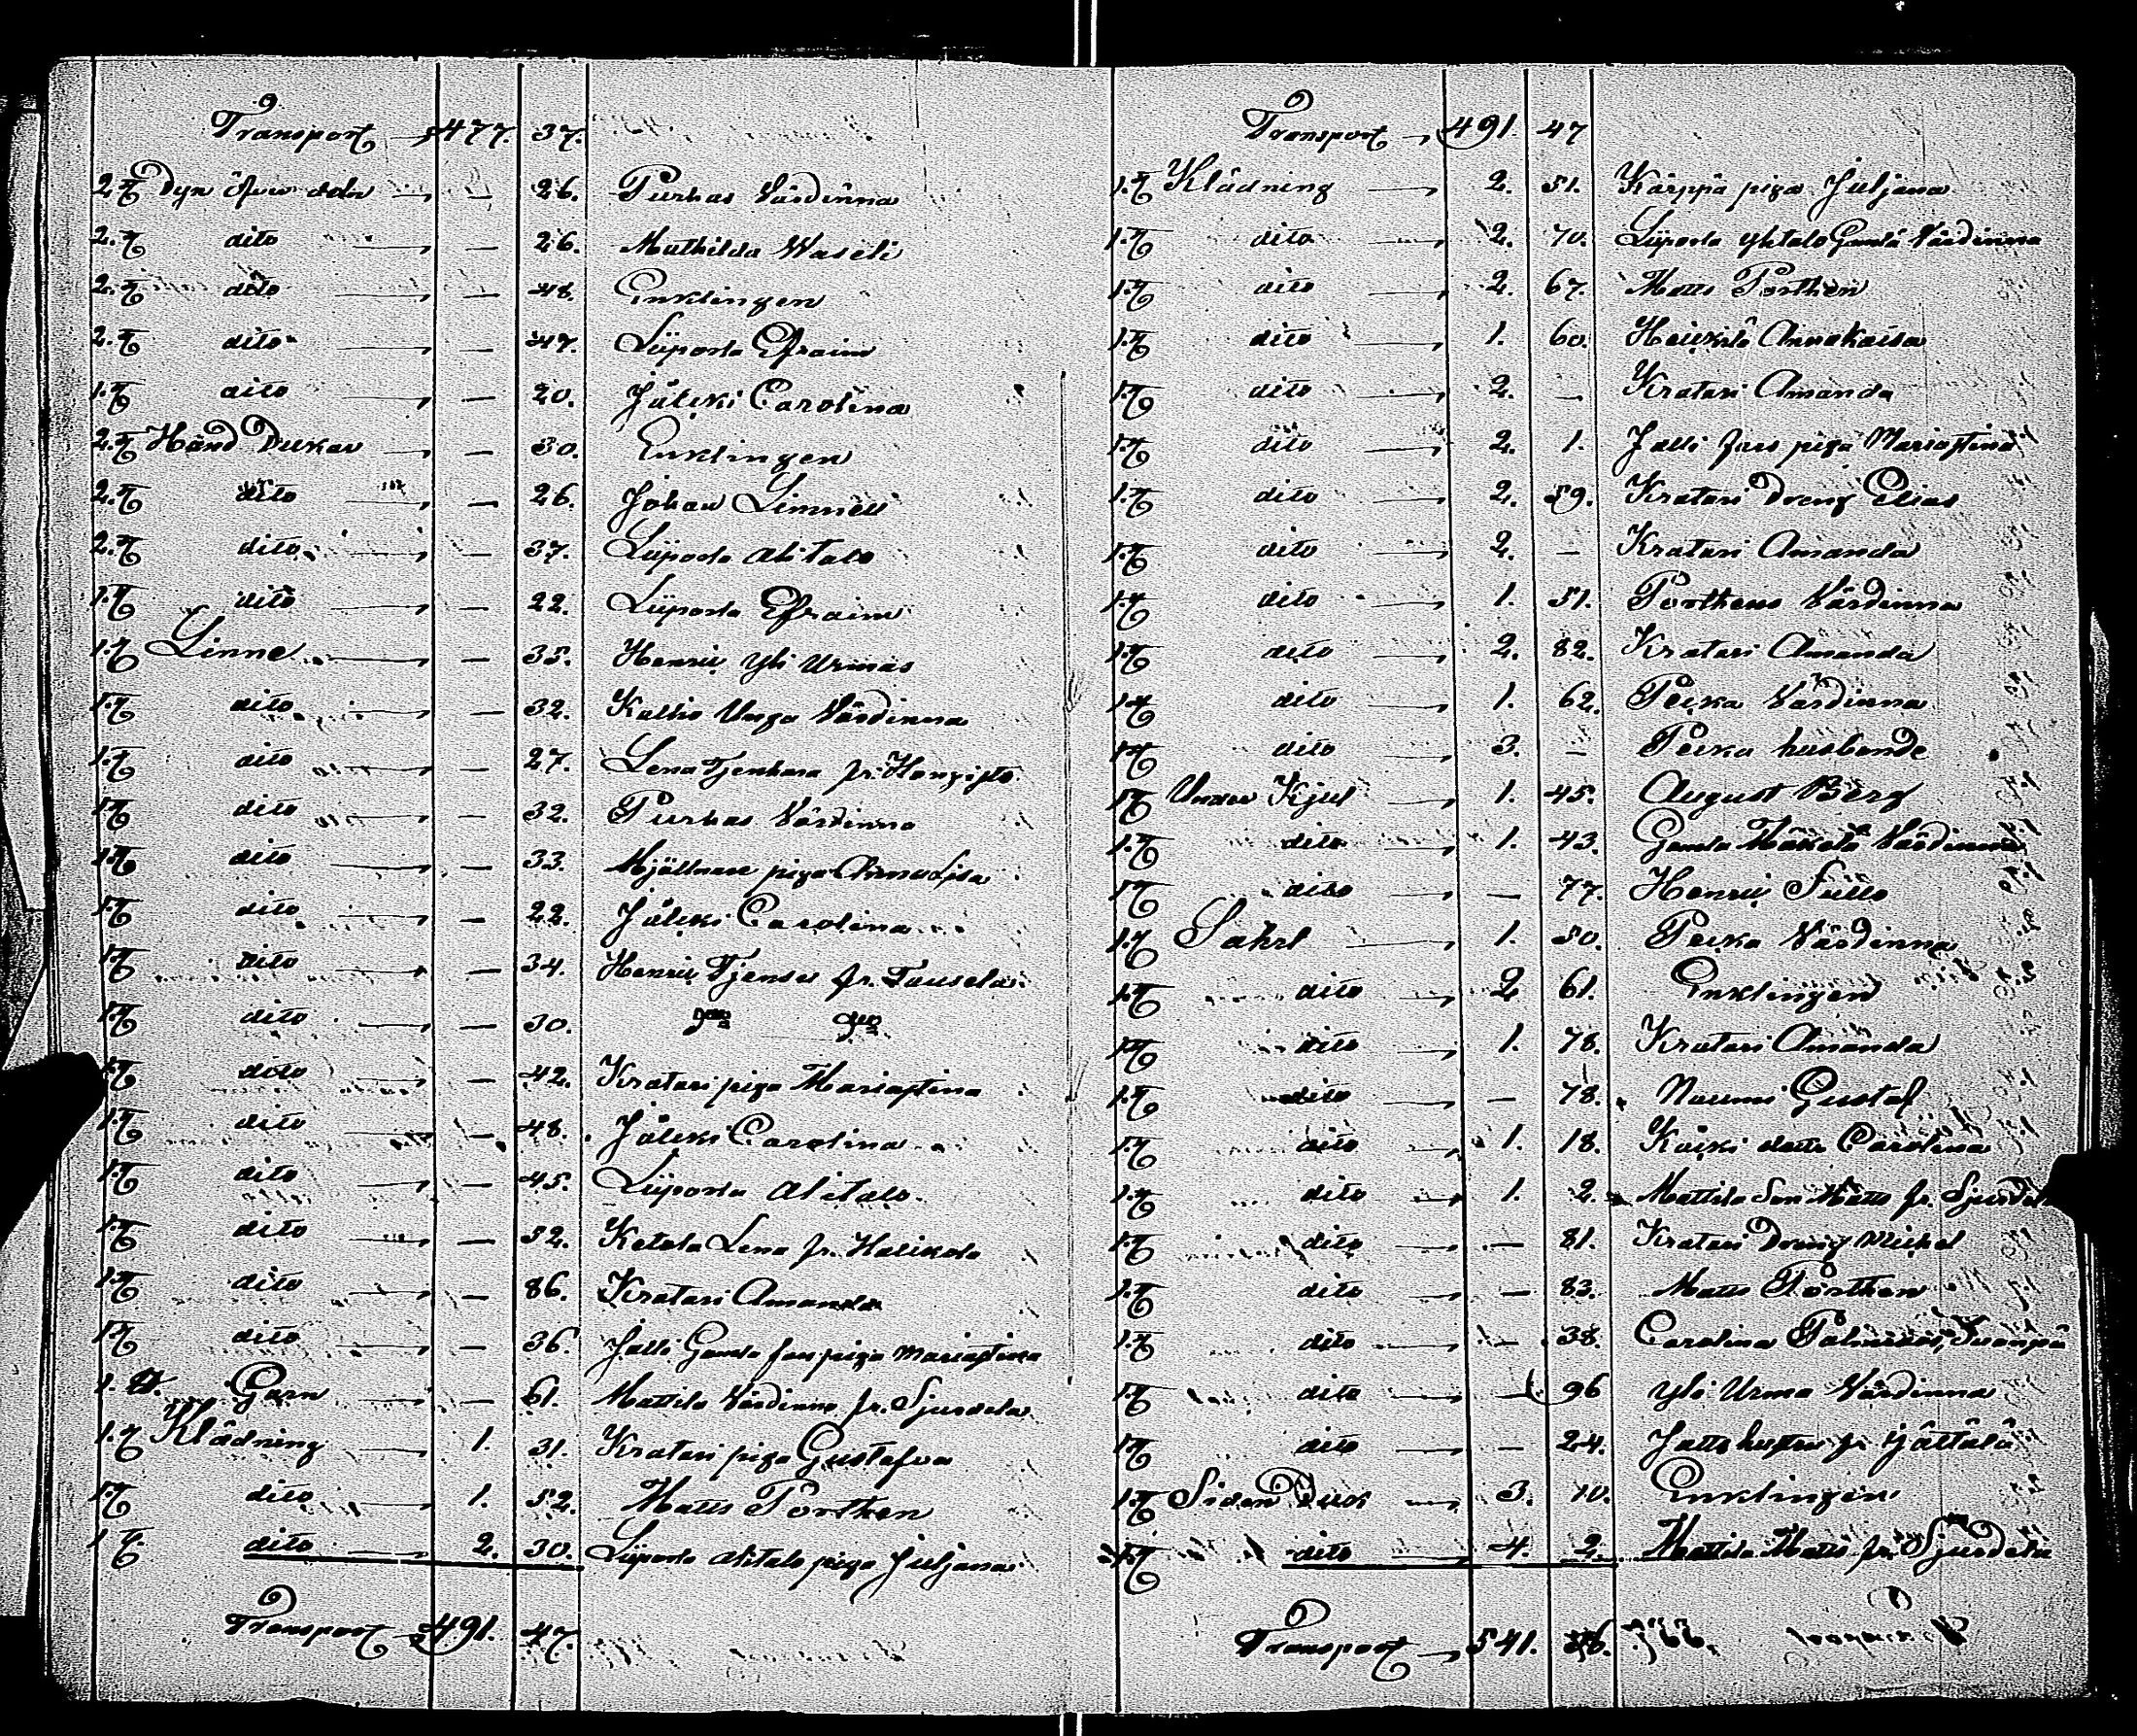 Transport 477. 37.
2. Dyn — 26. Purhas Värdinna
2. dito — 26. Mathilda Waseli
2. dito — 48. Enklingen
2. dito — 47. Liiposta Efraim
1. dito — 20. Jälski Carolina
2. Hand Dukar — 30. Enklingen
2. dito — 26. Johan Limnell
2. dito — 37. Liiposta alitalo
1. dito — 22. Liiposta Efraim
1. Linne — 35. Henrii yli Urmas
1. dito — 32. Kallio Unga Värdinna
1. dito — 27. Lena fr.
1. dito — 32. Purhas Värdinna
1. dito — 33. Mjöllnare piga Anna Lisa
1. dito — 22. Jälski Carolina
1. dito — 34. Henrii fr. Tausela
1. dito — 30.
1. dito — 42. Kratari piga Mariastina
1. dito — 48. Jälski Carolina
1. dito — 45. Liiposta alitalo
1. dito — 52. Ketola Lena fr. Halikola
1. dito — 86. Kratari Amanda
1. dito — 36. Jalli Gamla fars piga Mariastina
1. Garn — 61. Mattila Värdinna fr. Sjurdela
1. Klädning 1. 31. Kratari piga Gustafva
1. dito 1. 52. Matts Porthen
1. dito 2. 30. Liiposta alitalo piga Juljana
Transport 491. 47.
Transport 491. 47
1. Klädning 2. 51. Kärppä piga Juljana
1. dito 2. 70. Liiposta yhtalo Gamla Värdinna
1. dito 2. 67. Matts Porthen
1. dito 1. 60. Heikkilä Annakaisa
1. dito 2. — Kratari Amanda
1. dito 2. 1. Jalli fars piga Mariastina
1. dito 2. 59. Kratari Dreng Elias
1. dito 2. — Kratari Amanda
1. dito 1. 51. Porthens Värdinna
1. dito 2. 82. Kratari Amanda
1. dito 1. 62. Peska Värdinna
1. dito 3. — Peska husbonde
1. Under Kjul 1. 45. August Berg
1. dito 1. 43. Gamla Mäkelä Värdinna
1. dito — 77. Henrii Sillo
1. Sahrl 1. 50. Peska Värdinna
1. dito 2 61. Enklingen
1. dito 1. 78. Kratari Amanda
1. dito — 78. Naumi Gustaf
1. dito 1. 18. Carolina
1. dito 1. 2. Mattila Son Matts fr.
1. dito — 81. Kratari Dreng Mickel
1. dito — 83. Matts Porthen
1. dito — 38. Carolina
1. dito — 96 yli Urma Värdinna
1. dito — 24.
1. Siden Duk 3. 10. Enklingen
1. dito 4. 2. Mattila Matts fr. Sjurdela
Transport 541.